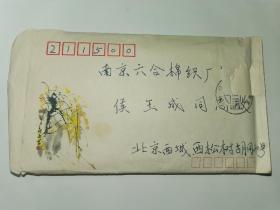 211500
南京六合棉织厂
侯玉成同志收
北京西城西松树胡同号